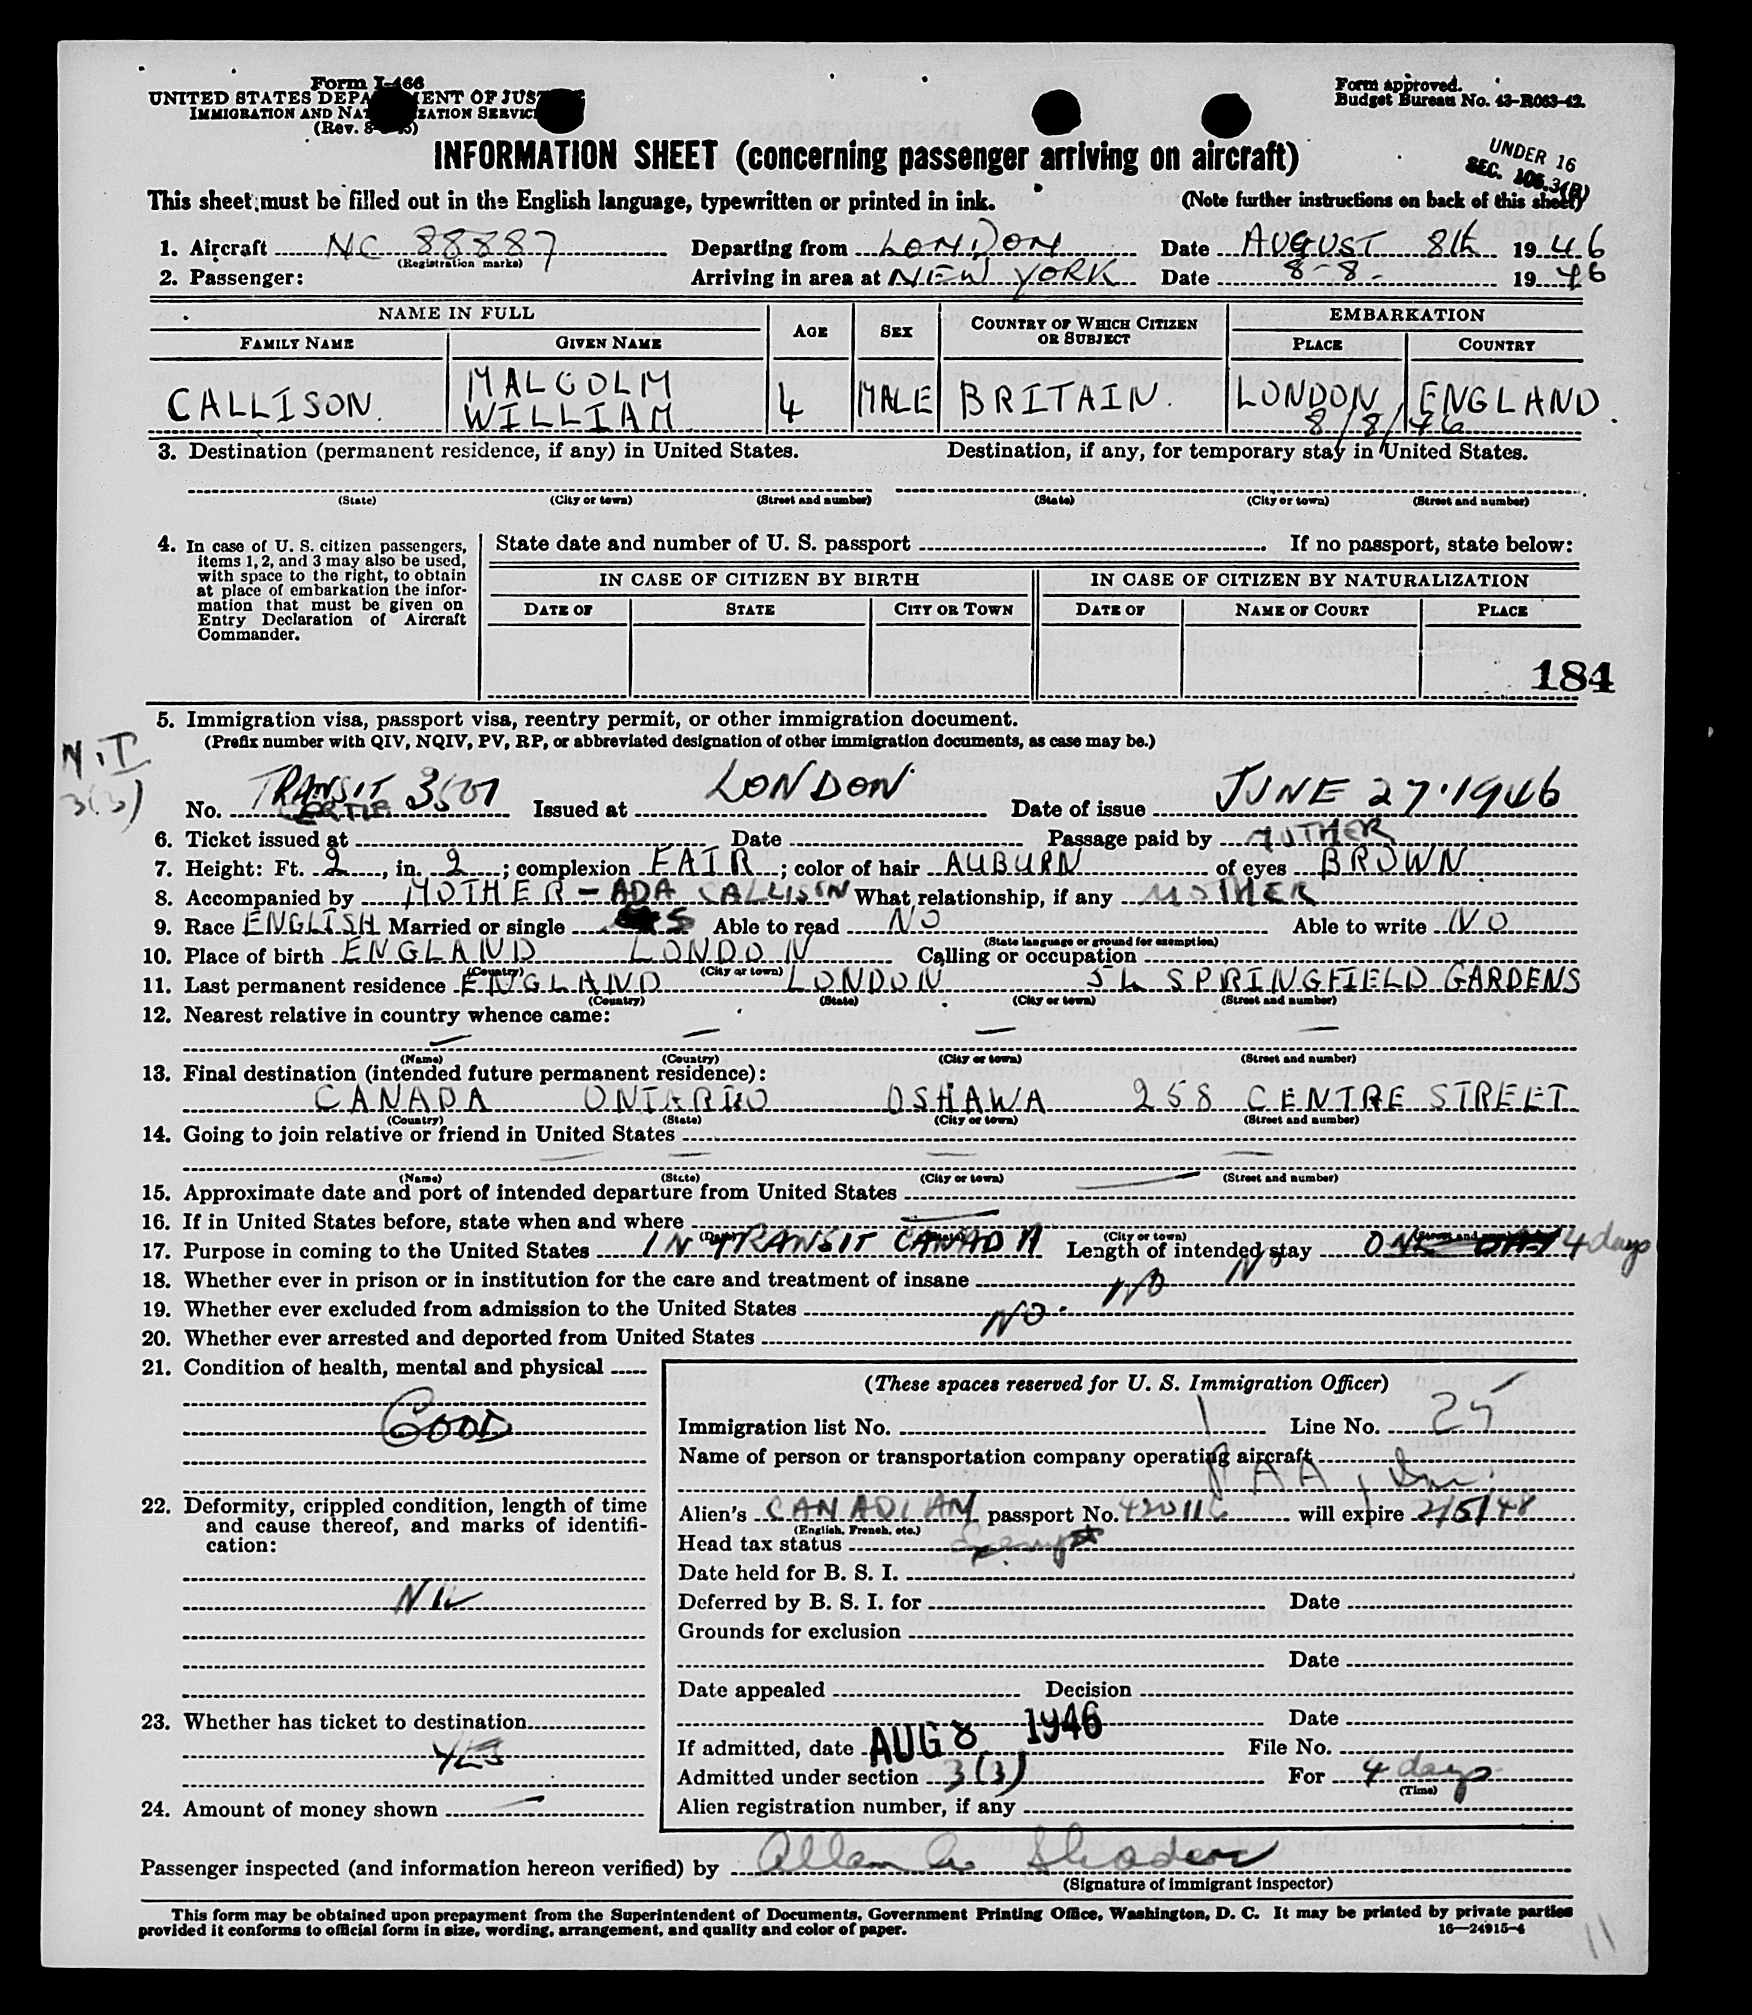 Form I-466
UNITED STATES DEPARTMENT OF JUSTICE
IMMIGRATION AND NATURALIZATION SERVICE
(Rev.
Form approved.
Budget Bureau No. 43-R063-42.
INFORMATION SHEET (concerning passenger arriving on aircraft)
UNDER 16
SEC. 105.3(B)
This sheet must be filled out in the English language, typewritten or printed in ink. (Note further instructions on back of this sheet)
1. Aircraft NC 88887 Departing from LONDON Date AUGUST 8th 1946
(Registration marks)
2. Passenger: Arriving in area at NEW YORK Date 8-8- 1946
NAME IN FULL AGE SEX COUNTRY OF WHICH CITIZEN OR SUBJECT EMBARKATION
FAMILY NAME GIVEN NAME PLACE COUNTRY
CALLISON. MALCOLM WILLIAM 4 MALE BRITAIN. LONDON ENGLAND.
8/8/46
3. Destination (permanent residence, if any) in United States. Destination, if any, for temporary stay in United States.
(State) (City or town) (Street and number) (State) (City or town) (Street and number)
4. In case of U. S. citizen passengers, items 1, 2, and 3 may also be used, with space to the right, to obtain at place of embarkation the information that must be given on Entry Declaration of Aircraft Commander.
State date and number of U. S. passport If no passport, state below:
IN CASE OF CITIZEN BY BIRTH IN CASE OF CITIZEN BY NATURALIZATION
DATE OF STATE CITY OR TOWN DATE OF NAME OF COURT PLACE
184
5. Immigration visa, passport visa, reentry permit, or other immigration document.
(Prefix number with QIV, NQIV, PV, RP, or abbreviated designation of other immigration documents, as case may be.)
N.T
3(3)
No. TRANSIT CERTIF Issued at LONDON Date of issue JUNE 27.1946
6. Ticket issued at Date Passage paid by MOTHER
7. Height: Ft. 2, in. 2; complexion FAIR; color of hair AUBURN of eyes BROWN
8. Accompanied by MOTHER - ADA CALLISON What relationship, if any MOTHER
9. Race ENGLISH Married or single S Able to read NO Able to write NO
(State language or ground for exemption)
10. Place of birth ENGLAND LONDON Calling or occupation
(Country) (City or town)
11. Last permanent residence ENGLAND LONDON SPRINGFIELD GARDENS
(Country) (State) (City or town) (Street and number)
12. Nearest relative in country whence came:
— — — —
(Name) (Country) (City or town) (Street and number)
13. Final destination (intended future permanent residence):
CANADA ONTARIO OSHAWA 258 CENTRE STREET
(Country) (State) (City or town) (Street and number)
14. Going to join relative or friend in United States
— — — —
(Name) (State) (City or town) (Street and number)
15. Approximate date and port of intended departure from United States —
16. If in United States before, state when and where —
(Date) (State) (City or town) (Street and number)
17. Purpose in coming to the United States IN TRANSIT CANADA Length of intended stay ONE DAY 4 days
18. Whether ever in prison or in institution for the care and treatment of insane NO
19. Whether ever excluded from admission to the United States NO
20. Whether ever arrested and deported from United States NO.
21. Condition of health, mental and physical
GOOD
22. Deformity, crippled condition, length of time and cause thereof, and marks of identification:
NIL
23. Whether has ticket to destination
YES
24. Amount of money shown —
(These spaces reserved for U. S. Immigration Officer)
Immigration list No. 1 Line No. 25
Name of person or transportation company operating aircraft
PAA, Inc.
Alien's CANADIAN passport No. will expire 2/5/48
(English, French, etc.)
Head tax status Exempt
Date held for B. S. I.
Deferred by B. S. I. for Date
Grounds for exclusion
Date
Date appealed Decision
Date
If admitted, date AUG 8 1946 File No.
Admitted under section 3(3) For 4 days
(Time)
Alien registration number, if any
Passenger inspected (and information hereon verified) by Allan
(Signature of immigrant inspector)
This form may be obtained upon prepayment from the Superintendent of Documents, Government Printing Office, Washington, D. C. It may be printed by private parties
provided it conforms to official form in size, wording, arrangement, and quality and color of paper. 16—24915-4
11